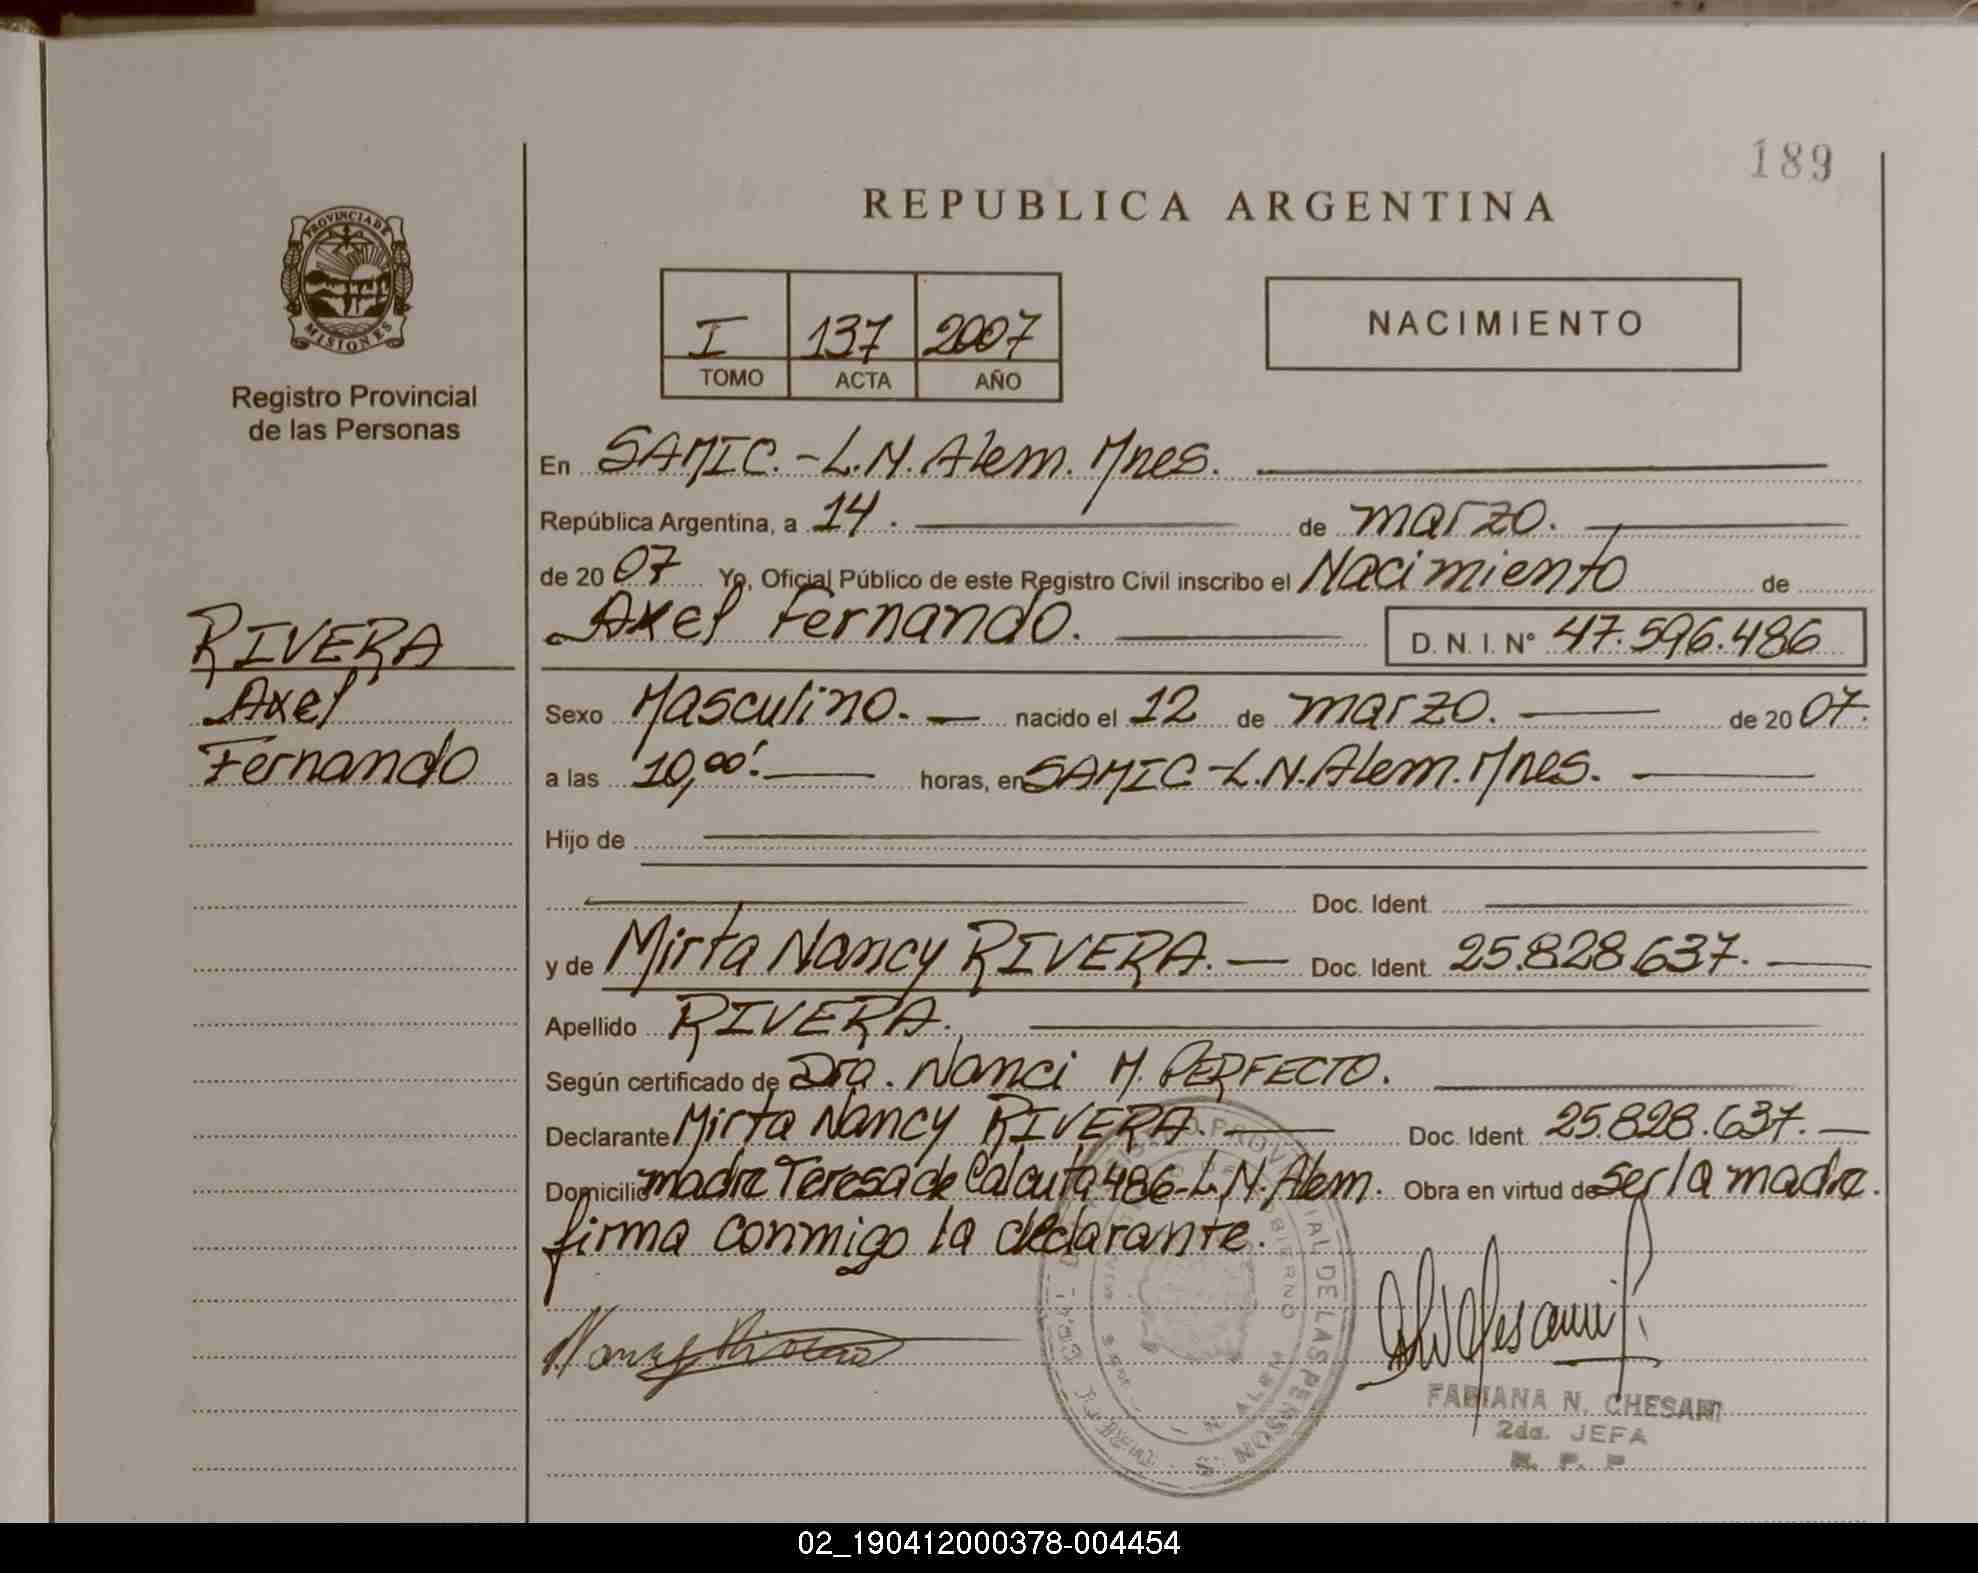 189
REPUBLICA ARGENTINA
PROVINCIA DE
MISIONES
Registro Provincial
de las Personas
I 137 2007
TOMO ACTA AÑO
NACIMIENTO
En SAMIC.-L.N.Alem.Mnes.
República Argentina, a 14. de marzo.
de 20 07 Yo, Oficial Público de este Registro Civil inscribo el Nacimiento de
Axel Fernando. D. N. I. Nº 47.596.486
RIVERA
Axel
Fernando
Sexo Masculino. nacido el 12 de marzo. de 20 07.
a las 10,00'. horas, en SAMIC-L.N.Alem.Mnes.
Hijo de
Doc. Ident.
y de Mirta Nancy RIVERA. Doc. Ident. 25.828.637.
Apellido RIVERA.
Según certificado de Dra. Nanci M. PERFECTO.
Declarante Mirta Nancy RIVERA Doc. Ident. 25.828.637.
Domicilio madre Teresa de Calcuta 486-L.N.Alem. Obra en virtud de ser la madre.
firma conmigo la declarante.
PROVINCIAL DE LAS PERSONAS
GOBIERNO
L. N. ALEM
FABIANA N. CHESANI
2da. JEFA
R. P. P.
02_190412000378-004454